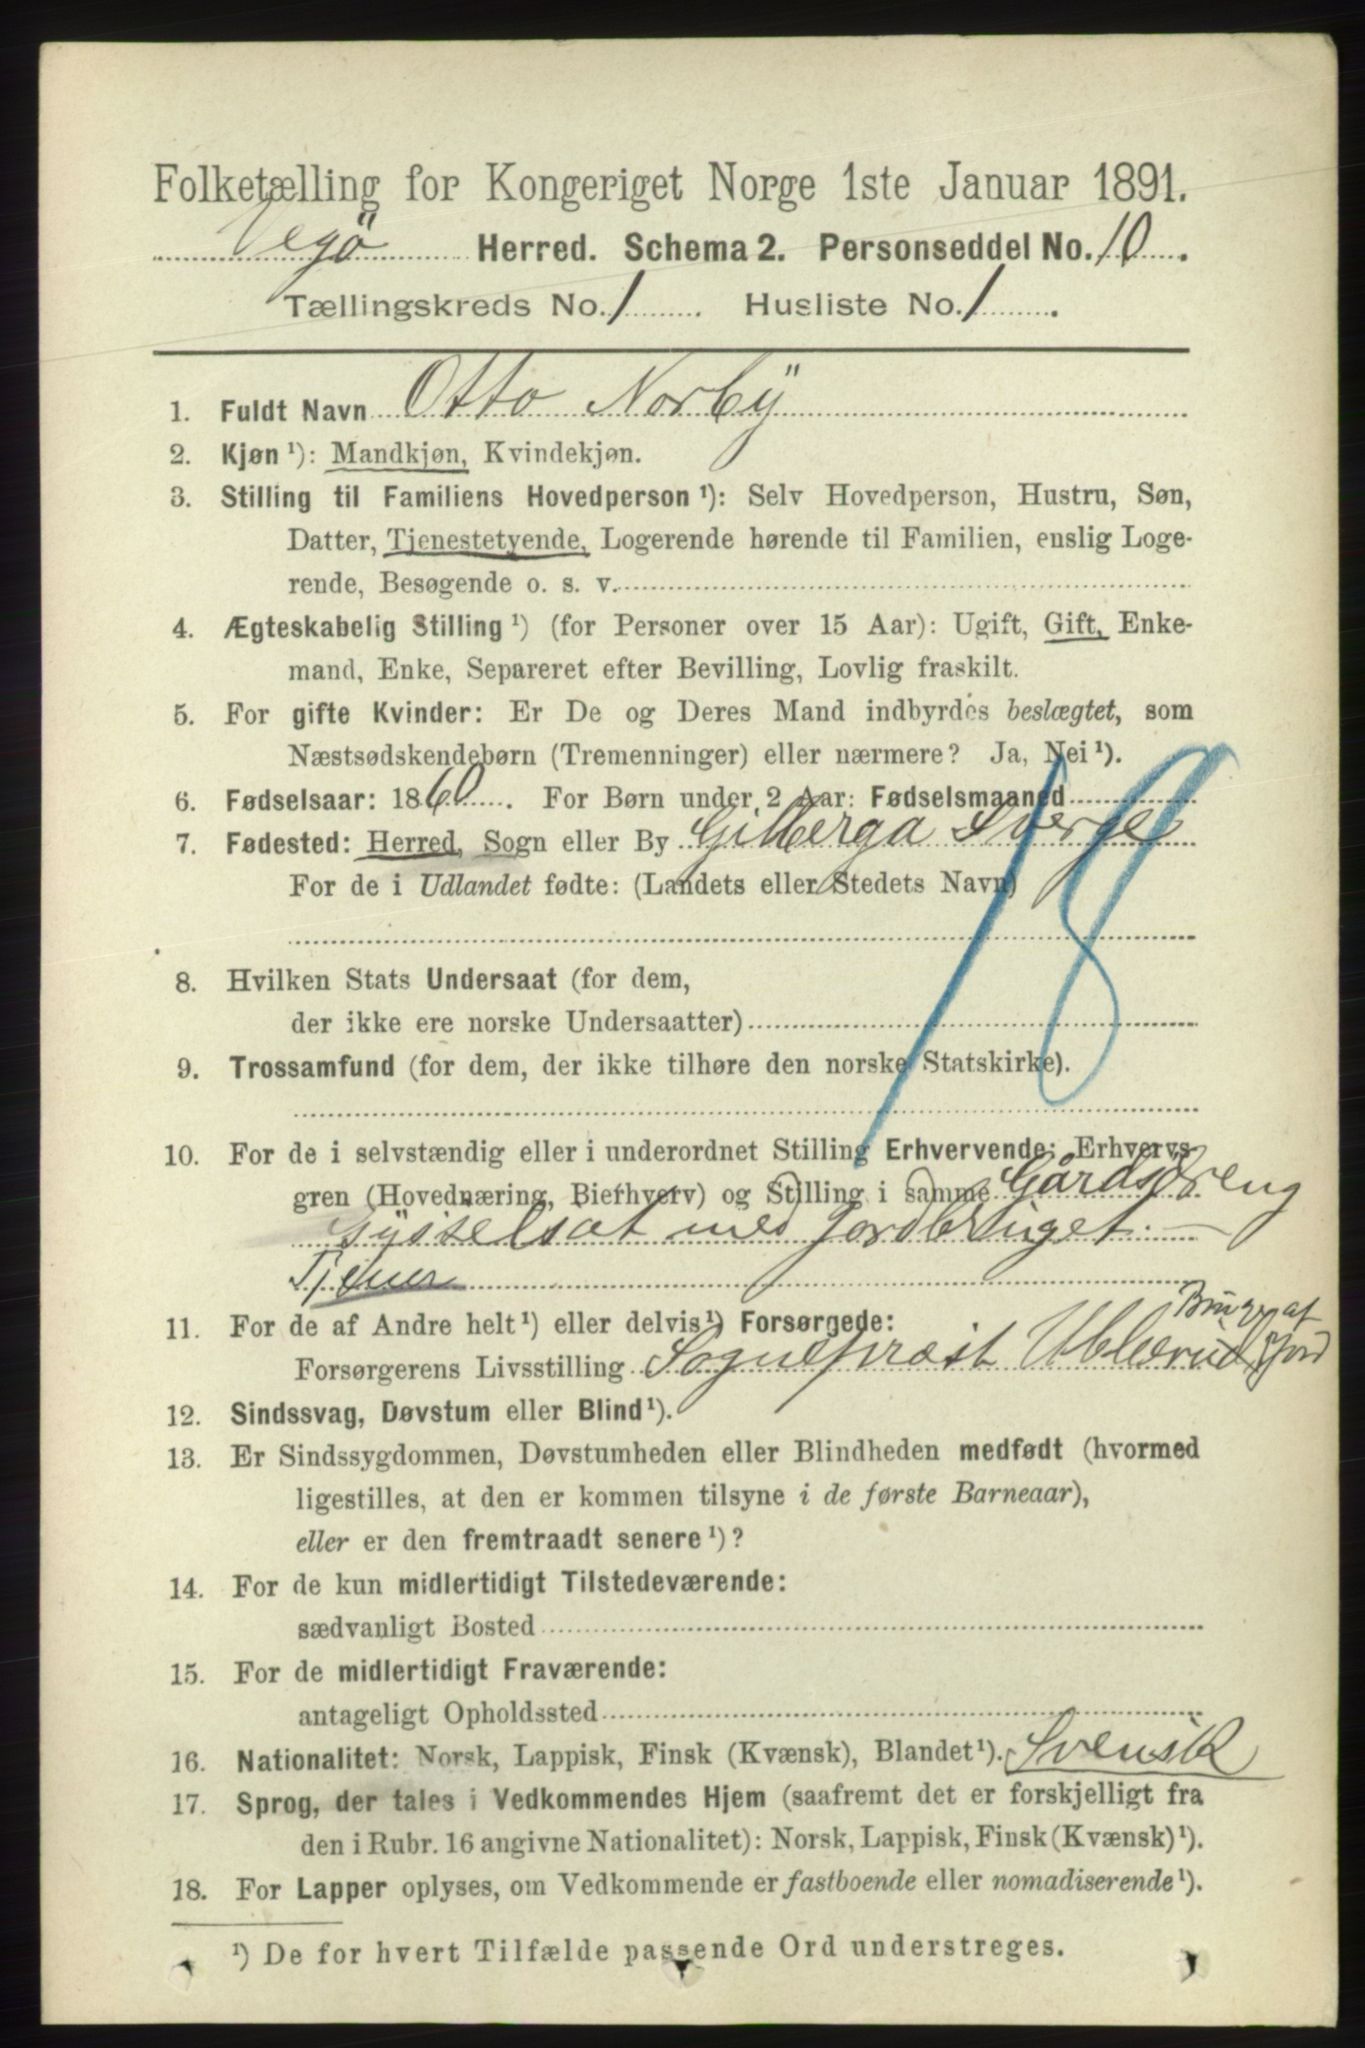 Folketælling for Kongeriget Norge 1ste Januar 1891.
Vegö Herred. Schema 2. Personseddel No. 10.
Tællingskreds No. 1. Husliste No. 1.
1. Fuldt Navn Otto Norbÿ
2. Kjøn ¹): Mandkjøn, Kvindekjøn.
3. Stilling til Familiens Hovedperson ¹): Selv Hovedperson, Hustru, Søn,
Datter, Tjenestetyende, Logerende hørende til Familien, enslig Loge-
rende, Besøgende o. s. v.
4. Ægteskabelig Stilling ¹) (for Personer over 15 Aar): Ugift, Gift, Enke-
mand, Enke, Separeret efter Bevilling, Lovlig fraskilt.
5. For gifte Kvinder: Er De og Deres Mand indbyrdes beslægtet, som
Næstsødskendebørn (Tremenninger) eller nærmere? Ja, Nei ¹).
6. Fødselsaar: 1860. For Børn under 2 Aar: Fødselsmaaned
7. Fødested: Herred, Sogn eller By Gilberga Sverge
For de i Udlandet fødte: (Landets eller Stedets Navn)
18
8. Hvilken Stats Undersaat (for dem,
der ikke ere norske Undersaatter)
9. Trossamfund (for dem, der ikke tilhøre den norske Statskirke).
10. For de i selvstændig eller i underordnet Stilling Erhvervende: Erhvervs-
gren (Hovednæring, Bierhverv) og Stilling i samme Gårdsdreng
Sysselsat med Jordbruget.
Tjener
11. For de af Andre helt ¹) eller delvis ¹) Forsørgede: Bruger af
Forsørgerens Livsstilling Sogneprest Jord
12. Sindssvag, Døvstum eller Blind ¹).
13. Er Sindssygdommen, Døvstumheden eller Blindheden medfødt (hvormed
ligestilles, at den er kommen tilsyne i de første Barneaar),
eller er den fremtraadt senere ¹)?
14. For de kun midlertidigt Tilstedeværende:
sædvanligt Bosted
15. For de midlertidigt Fraværende:
antageligt Opholdssted
16. Nationalitet: Norsk, Lappisk, Finsk (Kvænsk), Blandet ¹). Svensk
17. Sprog, der tales i Vedkommendes Hjem (saafremt det er forskjelligt fra
den i Rubr. 16 angivne Nationalitet): Norsk, Lappisk, Finsk (Kvænsk) ¹).
18. For Lapper oplyses, om Vedkommende er fastboende eller nomadiserende ¹).
¹) De for hvert Tilfælde passende Ord understreges.